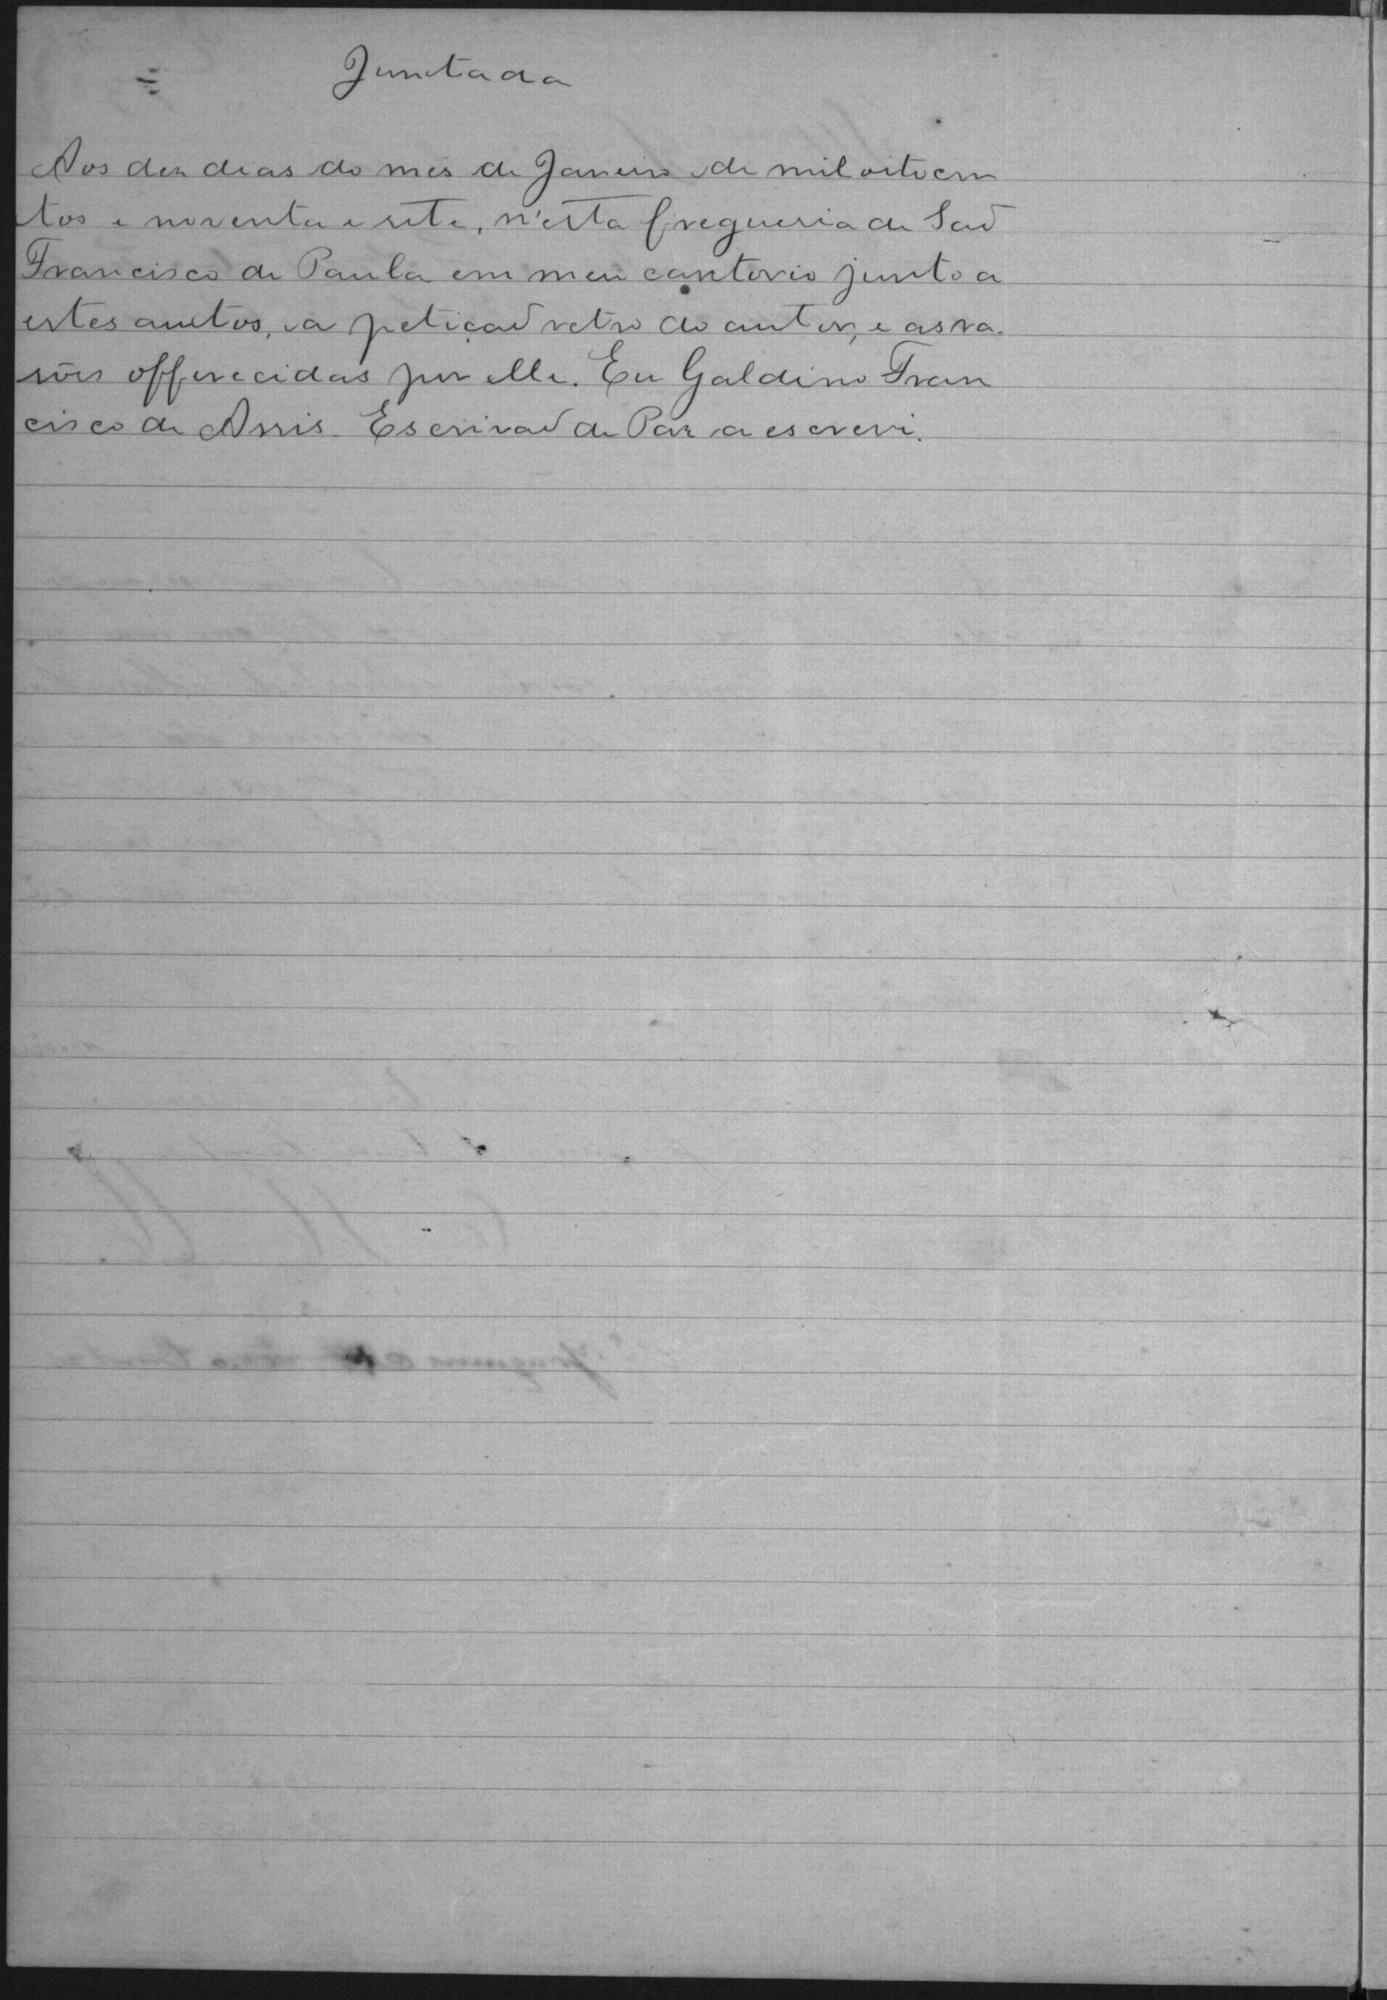 Juntada
Aos dez dias do mes de Janeiro de mil oitocen
tos e noventa e sete, n'esta freguesia de Saõ
Francisco de Paula em meu cartorio junto a
estes auctos, a petiçaõ retro do autor, e as ra-
sões offerecidas por elle. Eu Galdino Fran
cisco de Assis. Escrivaõ de Paz a escrevi.